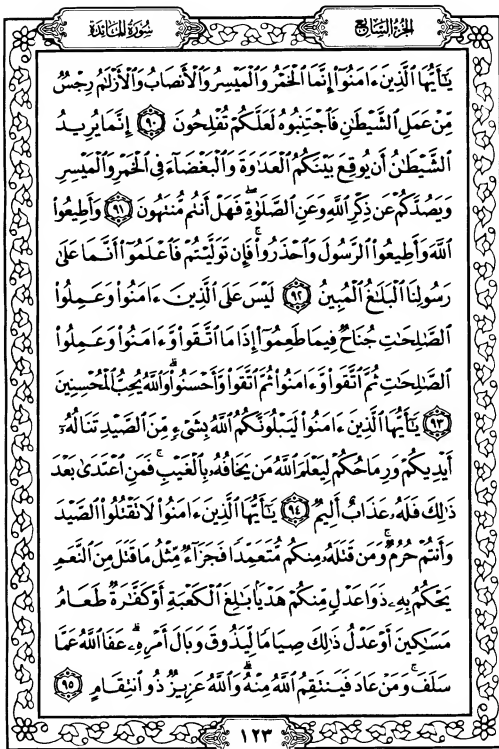 سُورَةُ المَائِدَةِ
الجُزْءُ السَّابِعُ
يَٰٓأَيُّهَا ٱلَّذِينَ ءَامَنُوٓا۟ إِنَّمَا ٱلْخَمْرُ وَٱلْمَيْسِرُ وَٱلْأَنصَابُ وَٱلْأَزْلَٰمُ رِجْسٌ
مِّنْ عَمَلِ ٱلشَّيْطَٰنِ فَٱجْتَنِبُوهُ لَعَلَّكُمْ تُفْلِحُونَ ٩٠ إِنَّمَا يُرِيدُ
ٱلشَّيْطَٰنُ أَن يُوقِعَ بَيْنَكُمُ ٱلْعَدَٰوَةَ وَٱلْبَغْضَآءَ فِى ٱلْخَمْرِ وَٱلْمَيْسِرِ
وَيَصُدَّكُمْ عَن ذِكْرِ ٱللَّهِ وَعَنِ ٱلصَّلَوٰةِ ۖ فَهَلْ أَنتُم مُّنتَهُونَ ٩١ وَأَطِيعُوا۟
ٱللَّهَ وَأَطِيعُوا۟ ٱلرَّسُولَ وَٱحْذَرُوا۟ ۚ فَإِن تَوَلَّيْتُمْ فَٱعْلَمُوٓا۟ أَنَّمَا عَلَىٰ
رَسُولِنَا ٱلْبَلَٰغُ ٱلْمُبِينُ ٩٢ لَيْسَ عَلَى ٱلَّذِينَ ءَامَنُوا۟ وَعَمِلُوا۟
ٱلصَّٰلِحَٰتِ جُنَاحٌ فِيمَا طَعِمُوٓا۟ إِذَا مَا ٱتَّقَوا۟ وَّءَامَنُوا۟ وَعَمِلُوا۟
ٱلصَّٰلِحَٰتِ ثُمَّ ٱتَّقَوا۟ وَّءَامَنُوا۟ ثُمَّ ٱتَّقَوا۟ وَّأَحْسَنُوا۟ ۗ وَٱللَّهُ يُحِبُّ ٱلْمُحْسِنِينَ
٩٣ يَٰٓأَيُّهَا ٱلَّذِينَ ءَامَنُوا۟ لَيَبْلُوَنَّكُمُ ٱللَّهُ بِشَىْءٍ مِّنَ ٱلصَّيْدِ تَنَالُهُۥٓ
أَيْدِيكُمْ وَرِمَاحُكُمْ لِيَعْلَمَ ٱللَّهُ مَن يَخَافُهُۥ بِٱلْغَيْبِ ۚ فَمَنِ ٱعْتَدَىٰ بَعْدَ
ذَٰلِكَ فَلَهُۥ عَذَابٌ أَلِيمٌ ٩٤ يَٰٓأَيُّهَا ٱلَّذِينَ ءَامَنُوا۟ لَا تَقْتُلُوا۟ ٱلصَّيْدَ
وَأَنتُمْ حُرُمٌ ۚ وَمَن قَتَلَهُۥ مِنكُم مُّتَعَمِّدًا فَجَزَآءٌ مِّثْلُ مَا قَتَلَ مِنَ ٱلنَّعَمِ
يَحْكُمُ بِهِۦ ذَوَا عَدْلٍ مِّنكُمْ هَدْيًۢا بَٰلِغَ ٱلْكَعْبَةِ أَوْ كَفَّٰرَةٌ طَعَامُ
مَسَٰكِينَ أَوْ عَدْلُ ذَٰلِكَ صِيَامًا لِّيَذُوقَ وَبَالَ أَمْرِهِۦ ۗ عَفَا ٱللَّهُ عَمَّا
سَلَفَ ۚ وَمَنْ عَادَ فَيَنتَقِمُ ٱللَّهُ مِنْهُ ۗ وَٱللَّهُ عَزِيزٌ ذُو ٱنتِقَامٍ ٩٥
١٢٣